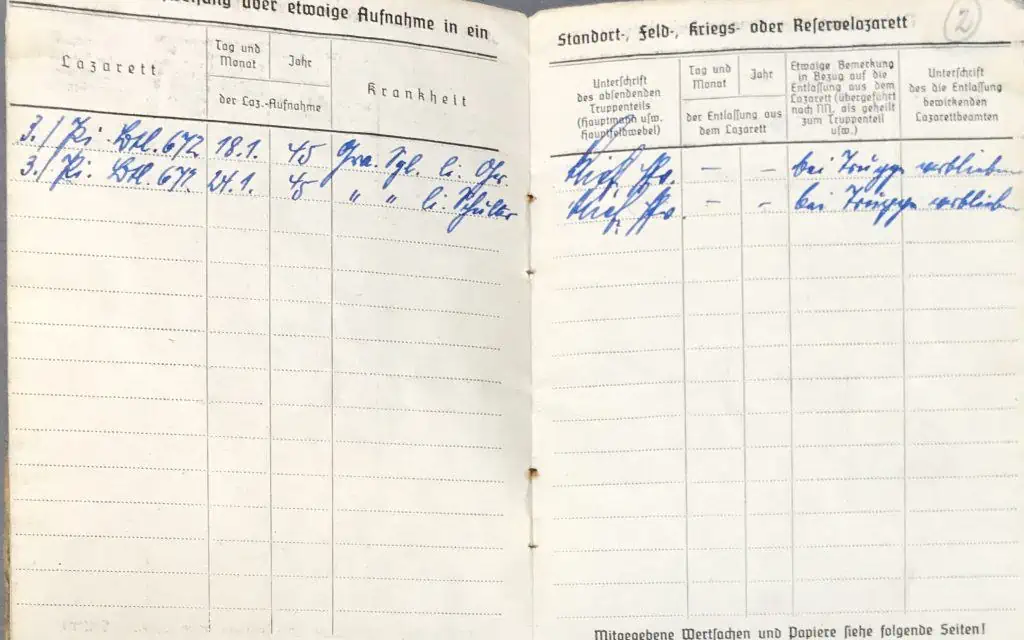 über etwaige Aufnahme in ein
Lazarett
Tag und
Monat
Jahr
der Laz.-Aufnahme
Krankheit
3./ Pi. Btl. 672 18.1. 45 Gra. Spl. li. Ohr.
3./ Pi. Btl. 672 24.1. 45 " " li. Schulter
Standort-, Feld-, Kriegs- oder Reservelazarett
2
Unterschrift
des absendenden
Truppenteils
(Hauptmann usw.
Hauptfeldwebel)
Tag und
Monat
Jahr
der Entlassung aus
dem Lazarett
Etwaige Bemerkung
in Bezug auf die
Entlassung aus dem
Lazarett (übergeführt
nach NN, als geheilt
zum Truppenteil
usw.)
Unterschrift
des die Entlassung
bewirkenden
Lazarettbeamten
– – bei Truppe verblieben
– – bei Truppe verblieben
Mitgegebene Wertsachen und Papiere siehe folgende Seiten!